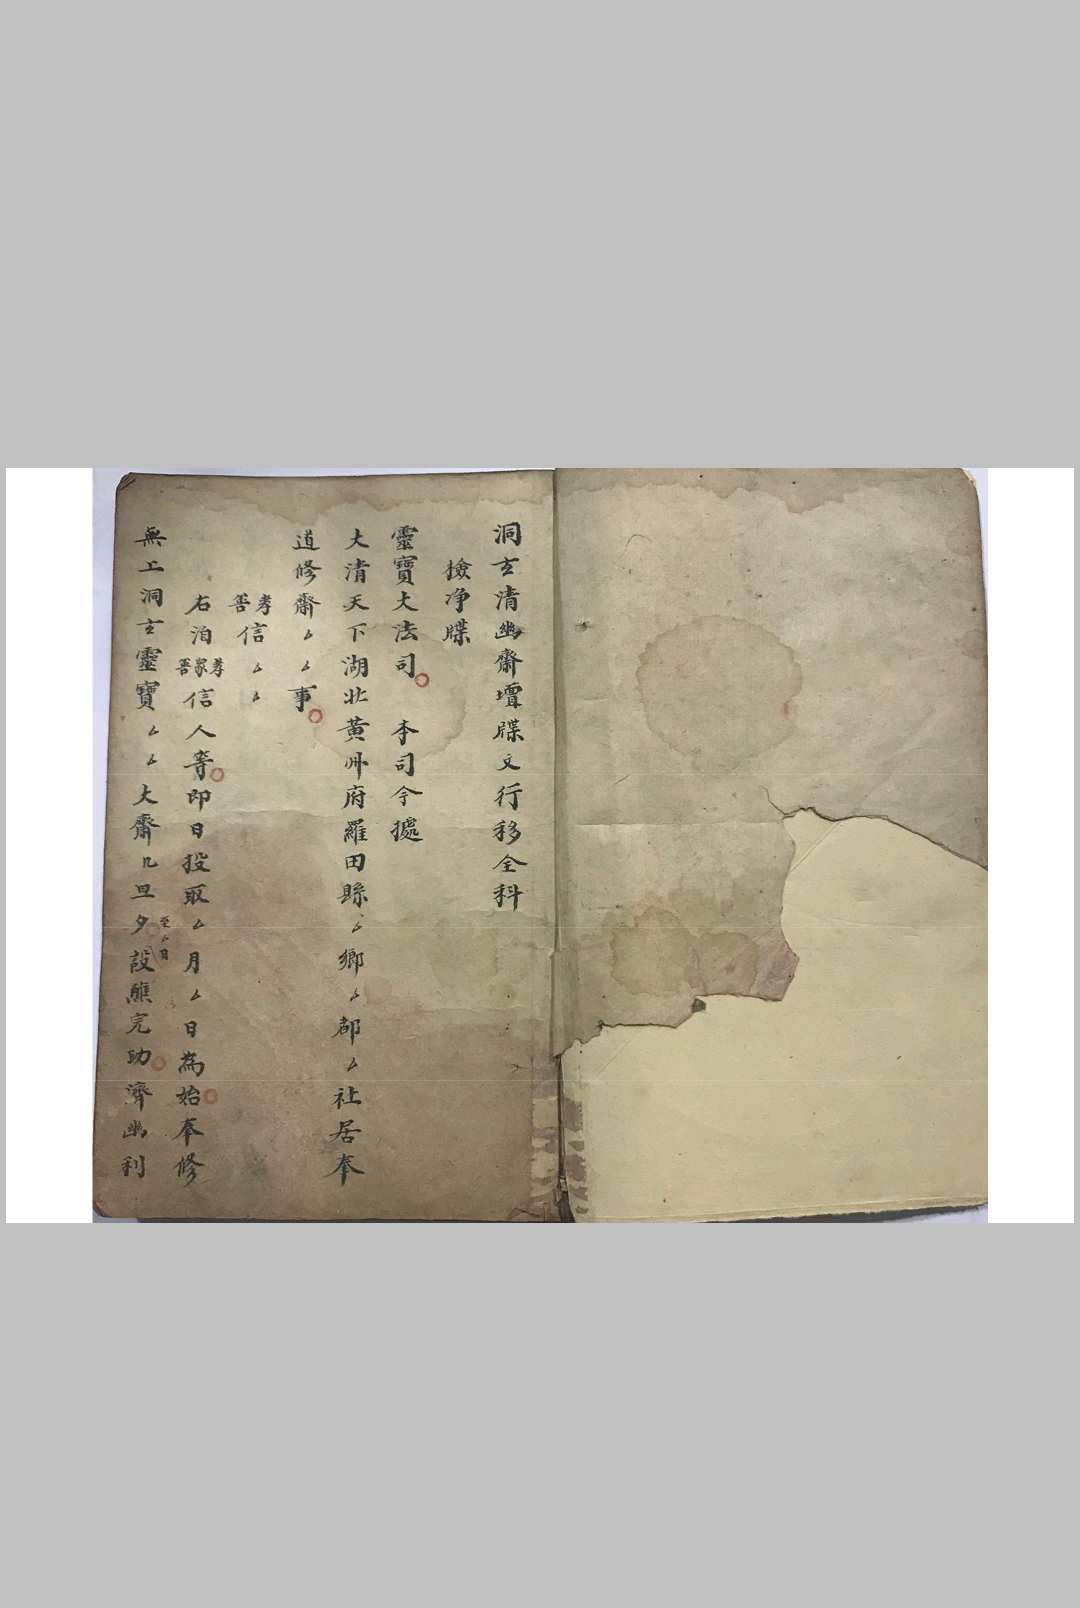 洞玄清幽齋壇牒文行移全科
撿净牒
靈寶大法司 本司今據
大清天下湖北黃州府羅田縣ム鄉ム都ム社居奉
道修齋ムム事
孝善信ムム
右洎孝眾善信人等即日投取ム月ム日為始奉修
至ム日
無上洞玄靈寶ムム大齋几旦夕設醮完功濟幽利